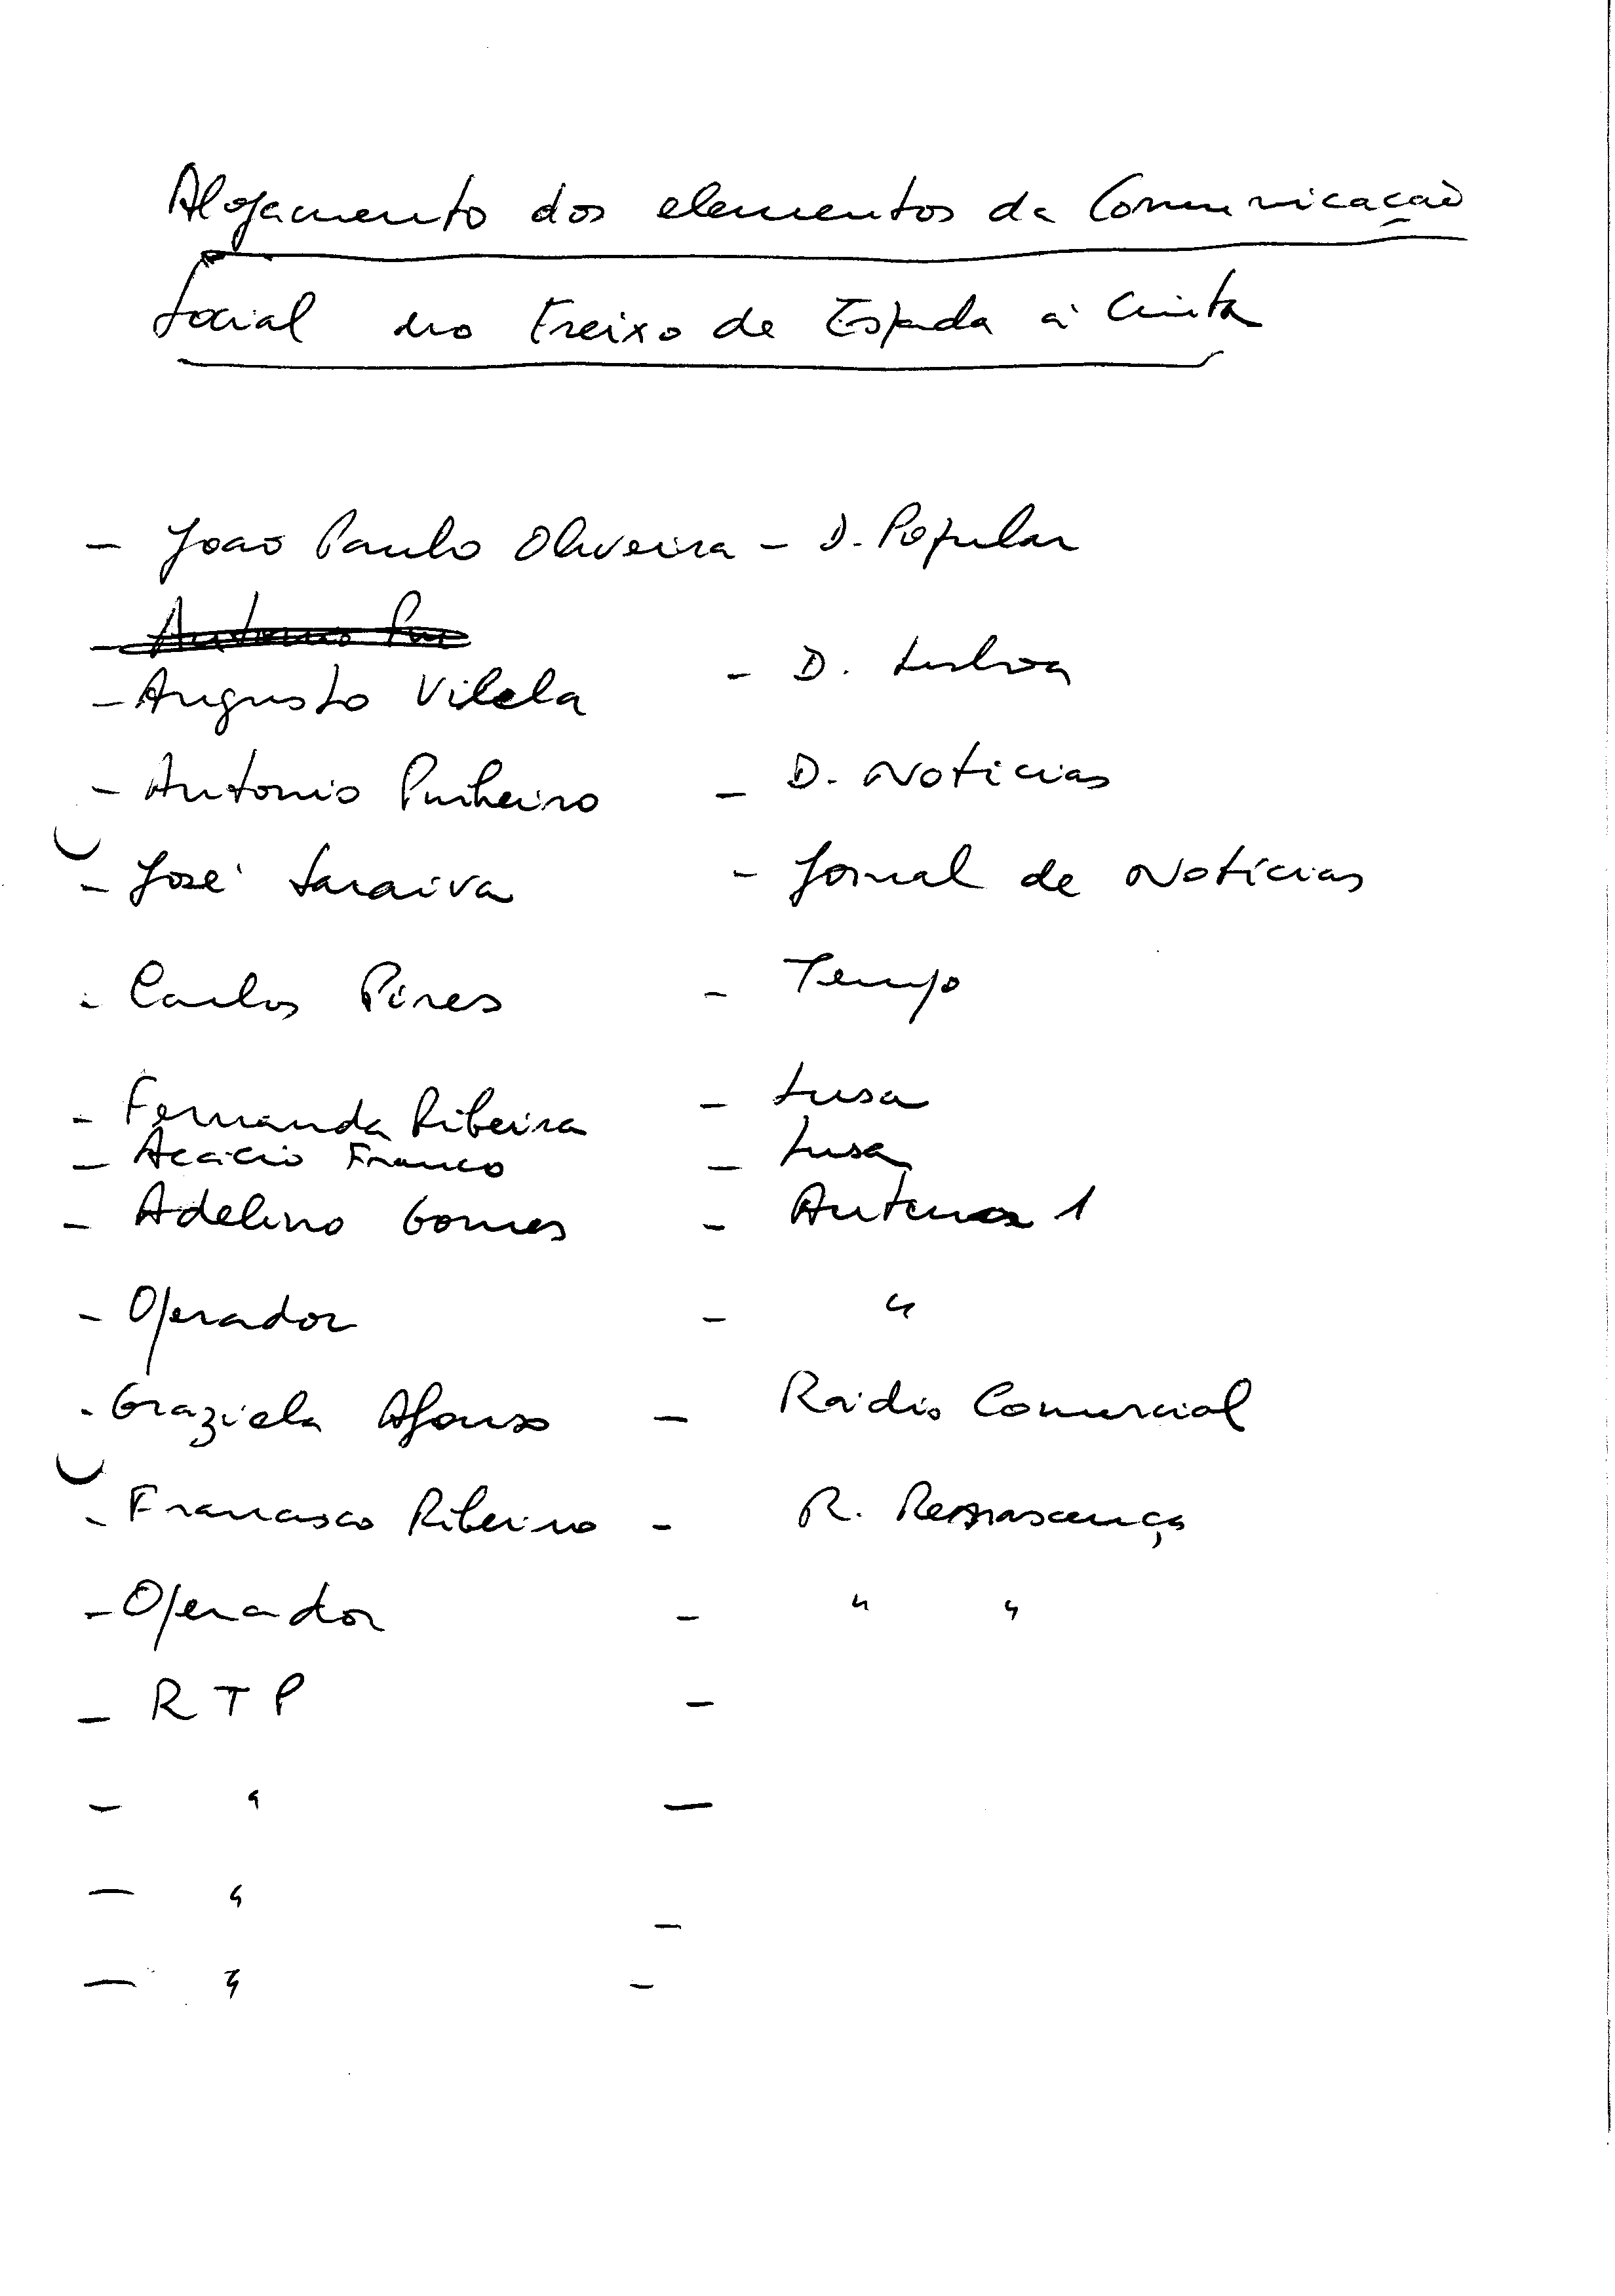 Alojamento dos elementos da Comunicação
Social no Freixo de Espada à Cinta
- João Paulo Oliveira - D. Popular
- Antonio Pin
- Augusto Vilela - D. Lisboa
- Antonio Pinheiro - D. Noticias
- José Saraiva - Jornal de Notícias
- Carlos Pires - Tempo
- Fernanda Ribeira - Lusa
- Acácio Franco - Lusa
- Adelino Gomes - Antena 1
- Operador - "
- Graziela Afonso - Rádio Comercial
- Francisco Ribeiro - R. Renascença
- Operador - " "
- R T P -
- " -
- " -
- " -